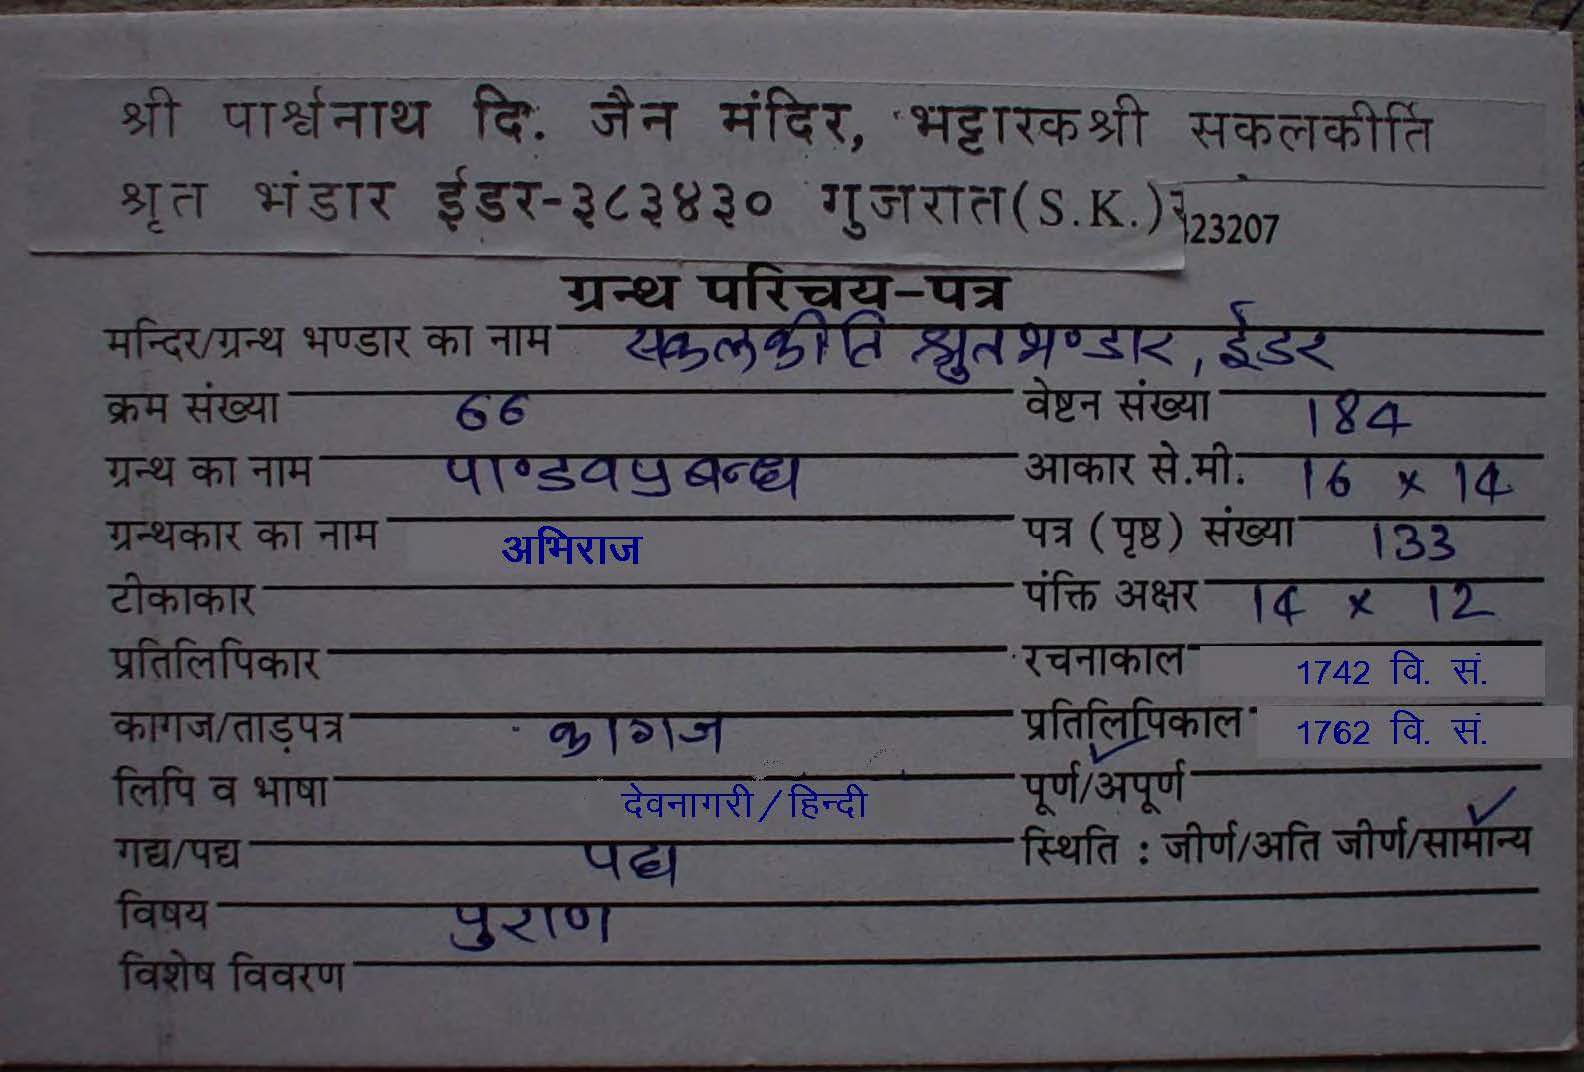 श्री पार्श्वनाथ दि. जैन मंदिर, भट्टारकश्री सकलकीर्ति
श्रृत भंडार ईडर-३८३४३० गुजरात(S.K.)
23207
ग्रन्थ परिचय-पत्र
मन्दिर/ग्रन्थ भण्डार का नाम सकलकीर्ति श्रुतभण्डार, ईडर
क्रम संख्या 66 वेष्टन संख्या 184
ग्रन्थ का नाम पाण्डवप्रबन्ध आकार से.मी. 16 x 14
ग्रन्थकार का नाम अभिराज पत्र (पृष्ठ) संख्या 133
टीकाकार पंक्ति अक्षर 14 x 12
प्रतिलिपिकार रचनाकाल 1742 वि. सं.
कागज/ताड़पत्र कागज प्रतिलिपिकाल 1762 वि. सं.
लिपि व भाषा देवनागरी/हिन्दी पूर्ण/अपूर्ण
गद्य/पद्य पद्य स्थिति : जीर्ण/अति जीर्ण/सामान्य
विषय पुराण
विशेष विवरण